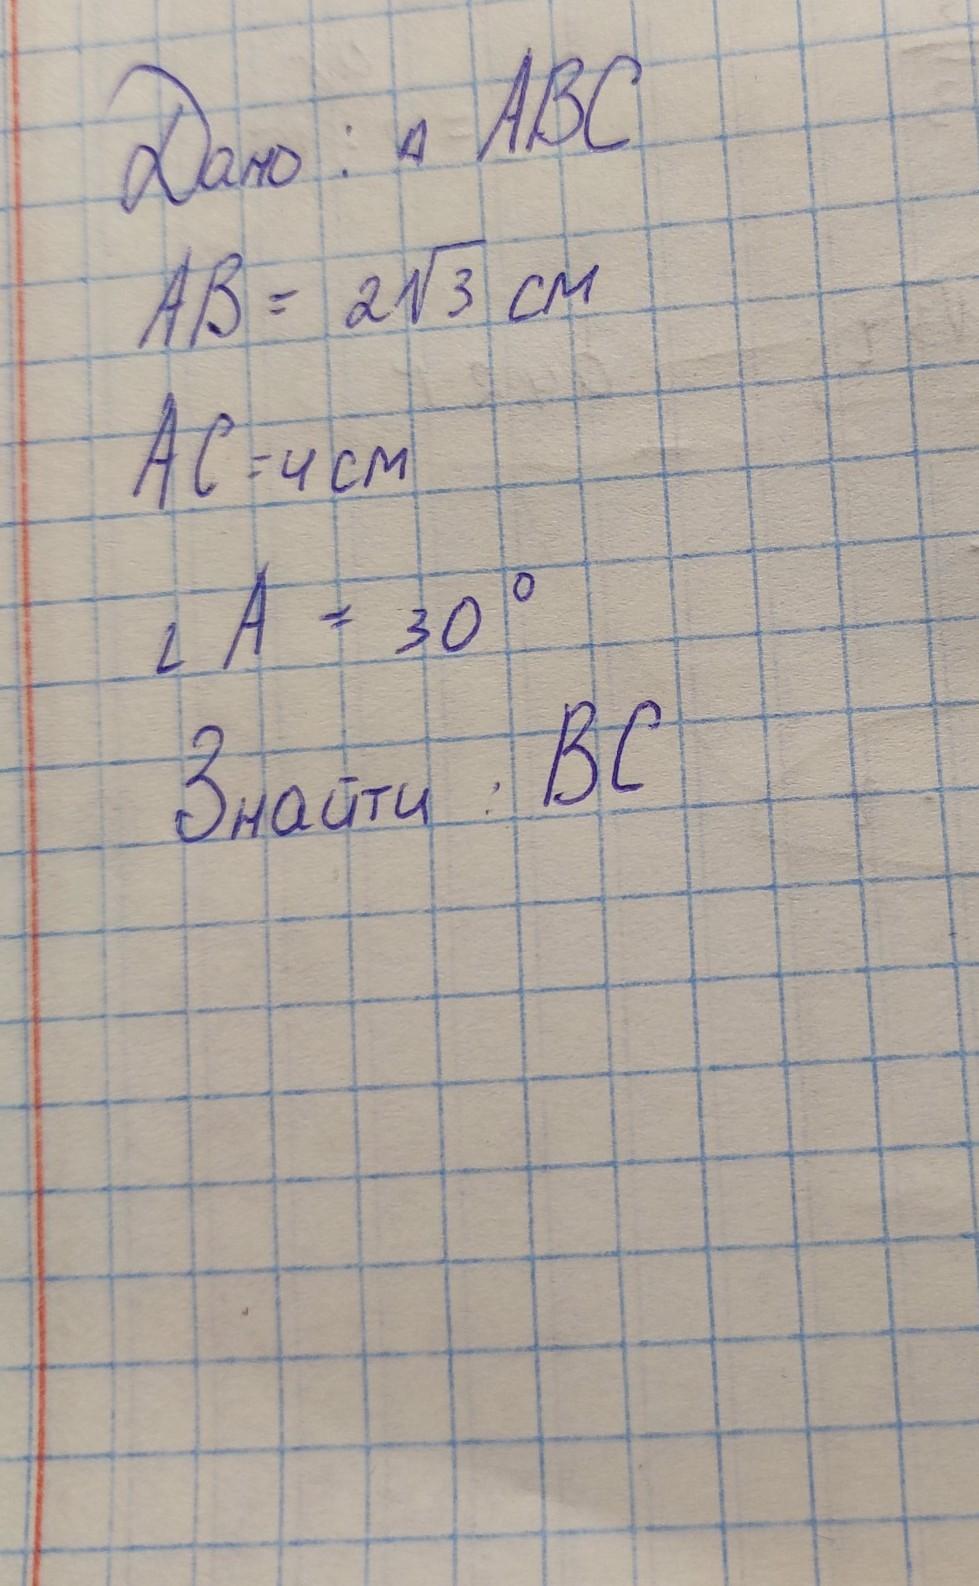 Дано: △ ABC
AB = 2√3 см
AC = 4 см
∠ A = 30°
Знайти : BC